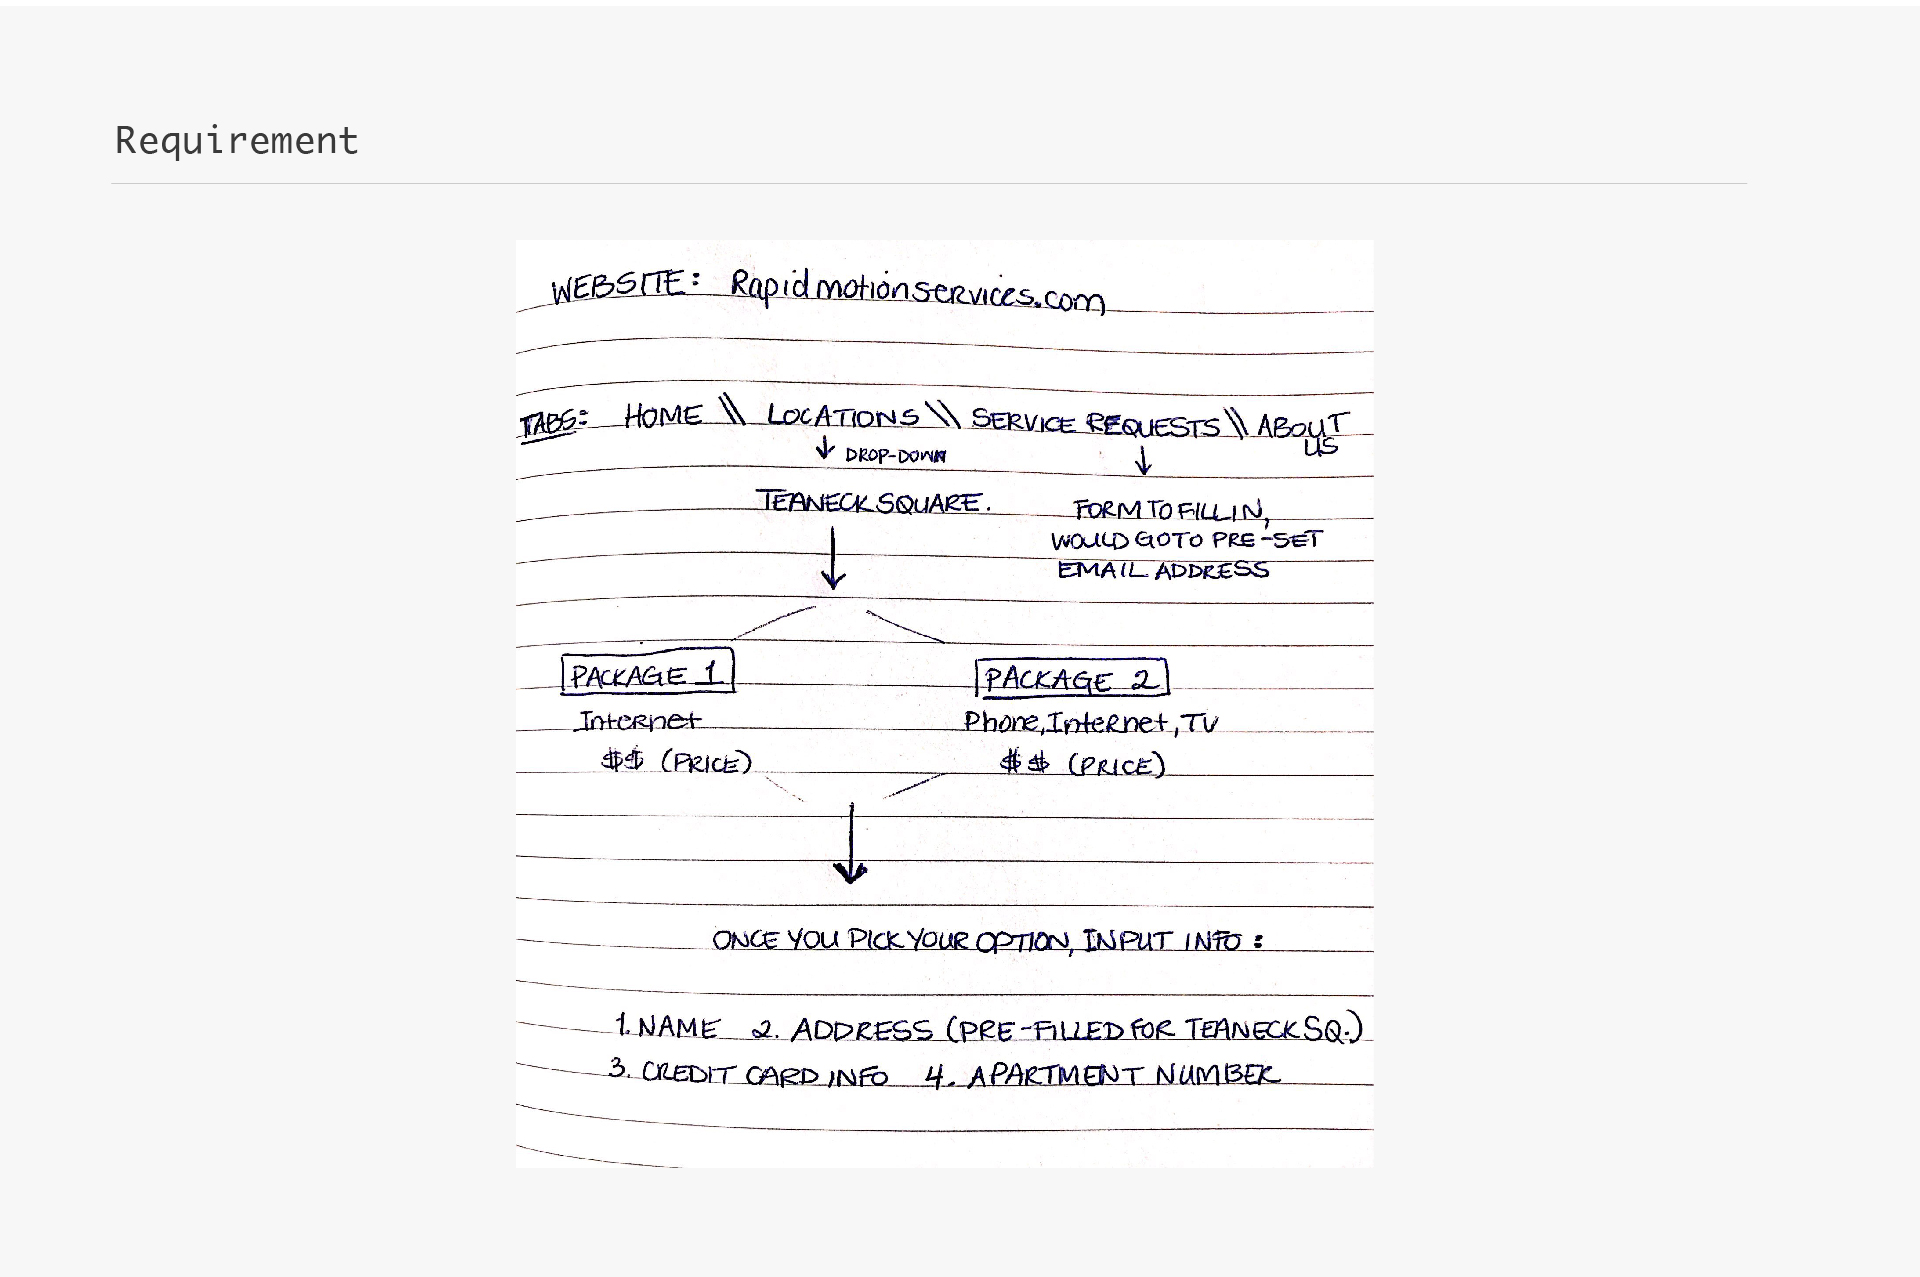 Requirement
WEBSITE: Rapidmotionservices.com
TABS: HOME \\ LOCATIONS \\ SERVICE REQUESTS \\ ABOUT US
↓ DROP-DOWN ↓
TEANECK SQUARE.
FORM TO FILL IN,
WOULD GO TO PRE-SET
EMAIL ADDRESS
PACKAGE 1
Internet
$$ (PRICE)
PACKAGE 2
Phone, Internet, TV
$$ (PRICE)
ONCE YOU PICK YOUR OPTION, INPUT INFO:
1. NAME 2. ADDRESS (PRE-FILLED FOR TEANECK SQ.)
3. CREDIT CARD INFO 4. APARTMENT NUMBER